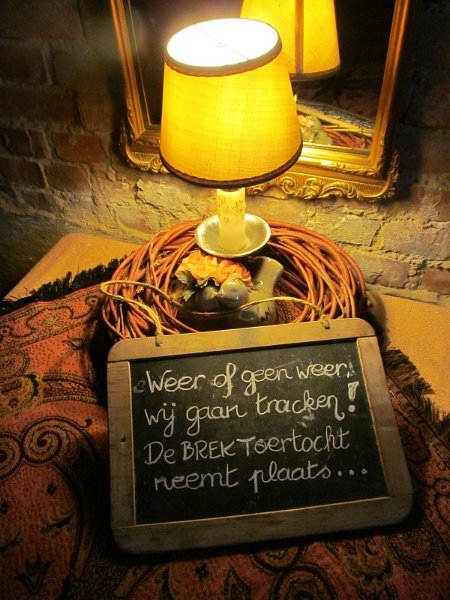 Weer of geen weer,
wij gaan tracken!
De BREK Toertocht
neemt plaats...